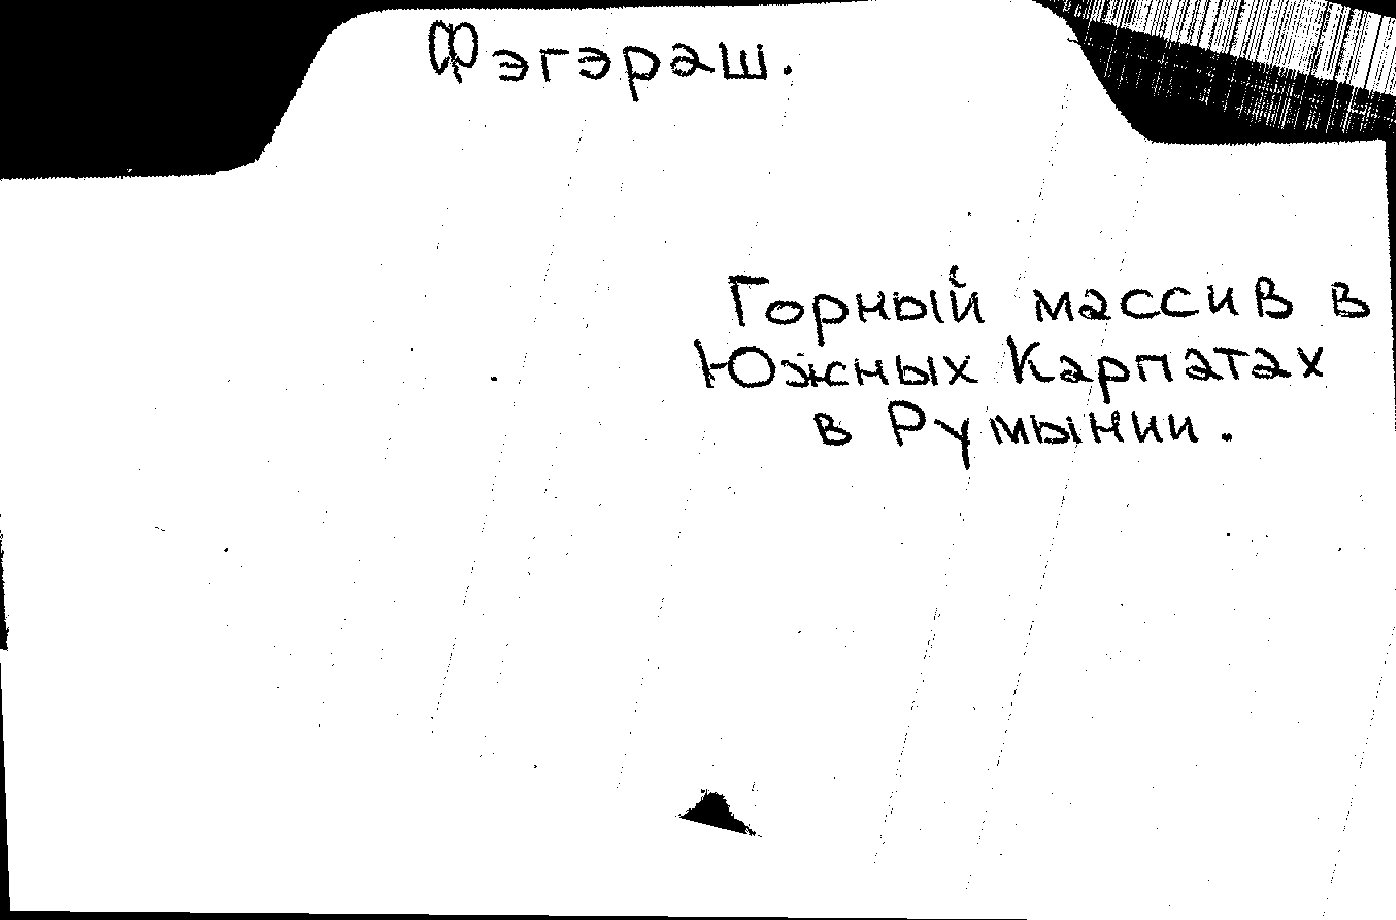 Фэгэраш.
Горный массив в
Южных Карпатах
в Румынии.